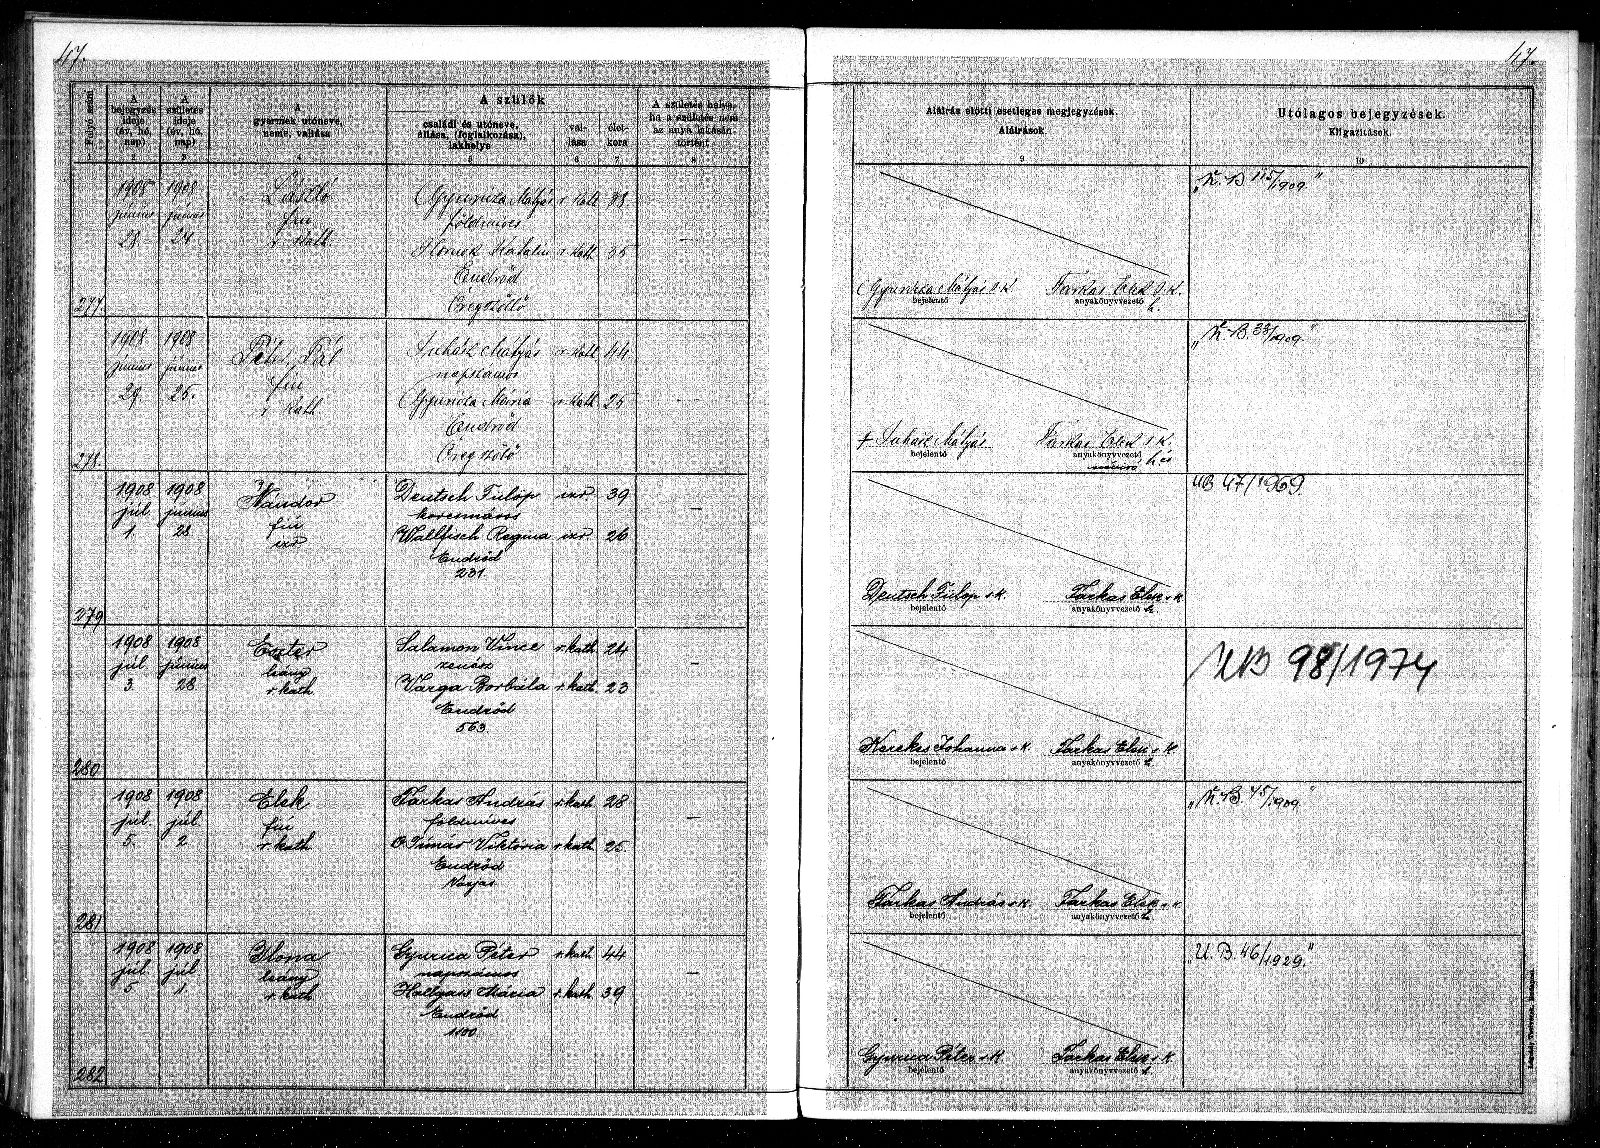 47.
47.
Folyó szám
1
A bejegyzés ideje (év, hó, nap)
2
A születés ideje (év, hó, nap)
3
A gyermek utóneve, neme, vallása
4
A szülők
családi és utóneve, állása, (foglalkozása), lakhelye
5
vallása
6
életkora
7
A születés helye, ha a születés nem az anya lakásán történt
8
Aláírás előtti esetleges megjegyzések.
Aláírások.
9
Utólagos bejegyzések.
Kiigazítások.
10
277.
1908 június 28
1908 június 24
László
fiu
r. kath
Gyuricza Mátyás r. kath 38
földmíves
Hornok Katalin r. kath 35
Endrőd
Öregszőlő
Gyuricza Mátyás s. k.
bejelentő
Farkas Elek s. k.
anyakönyvvezető h.
„K. B 115/1909."
278.
1908 június 29.
1908 június 25.
Péter Pál
fiu
r. kath
Juhász Mátyás r. kath 44
napszámos
Gyuricza Mária r. kath 25
Endrőd
Öregszőlő
+ Juhász Mátyás
bejelentő
Farkas Elek s. k.
anyakönyvvezető h. és
névíró
„K. B. 33/1909."
279
1908 júl. 1.
1908 június 28
Nándor
fiu
izr
Deutsch Fülöp izr 39
korcsmáros
Wallfisch Regina izr 26
Endrőd
231.
Deutsch Fülöp s. k.
bejelentő
Farkas Elek s. k.
anyakönyvvezető h.
UB 47/1969.
280
1908 júl. 3.
1908 június 28
Eszter
leány
r. kath
Salamon Vince r. kath. 24
zenész
Varga Borbála r. kath. 23
Endrőd
563.
Kerekes Johanna s. k.
bejelentő
Farkas Elek s. k.
anyakönyvvezető h.
UB 98/1974
281
1908 júl. 5.
1908 júl. 2
Elek
fiu
r. kath
Farkas András r. kath 28
földmíves
Tímár Viktória r. kath 25
Endrőd
Nagylapos
Farkas András s. k.
bejelentő
Farkas Elek s. k.
anyakönyvvezető h.
„K. B. 45/1909."
282
1908 júl. 5
1908 júl. 1.
Ilona
leány
r. kath
Gyurica Péter r. kath 44
napszámos
Mária r. kath 39
Endrőd
1100.
Gyurica Péter s. k.
bejelentő
Farkas Elek s. k.
anyakönyvvezető h.
„U. B. 46/1929."